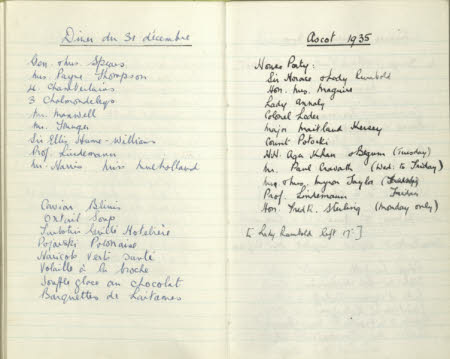 Diner du 31 décembre
Gen. & Mrs. Spears
Mrs. Payne Thompson
H. Chamberlains
3 Cholmondeleys
Mr. Maxwell
Mr. Younger
Sir Ellis Hume-Williams
Prof. Lindemann
Mr. Harris Miss Mulholland
Caviar Blinis
Oxtail Soup
Turbotin Hotelière
Pojarski Polonaise
Haricots Verts santé
Volaille à la broche
Souffle glace au chocolat
Barquettes de Laitances
Ascot 1935
House Party:
Sir Horace & Lady Rumbold
Hon. Mrs. Maguire
Lady Annaly
Colonel Lader
Major Maitland Kersey
Count Potocki
H.H. Aga Khan & Begum (Tuesday)
Mr. Paul Cravath (Wed. to Friday)
Mr. & Mrs. Myron Taylor
Prof. Lindemann
Hon. Fredk. Sterling (Monday only)
Lady Rumbold left 17.]